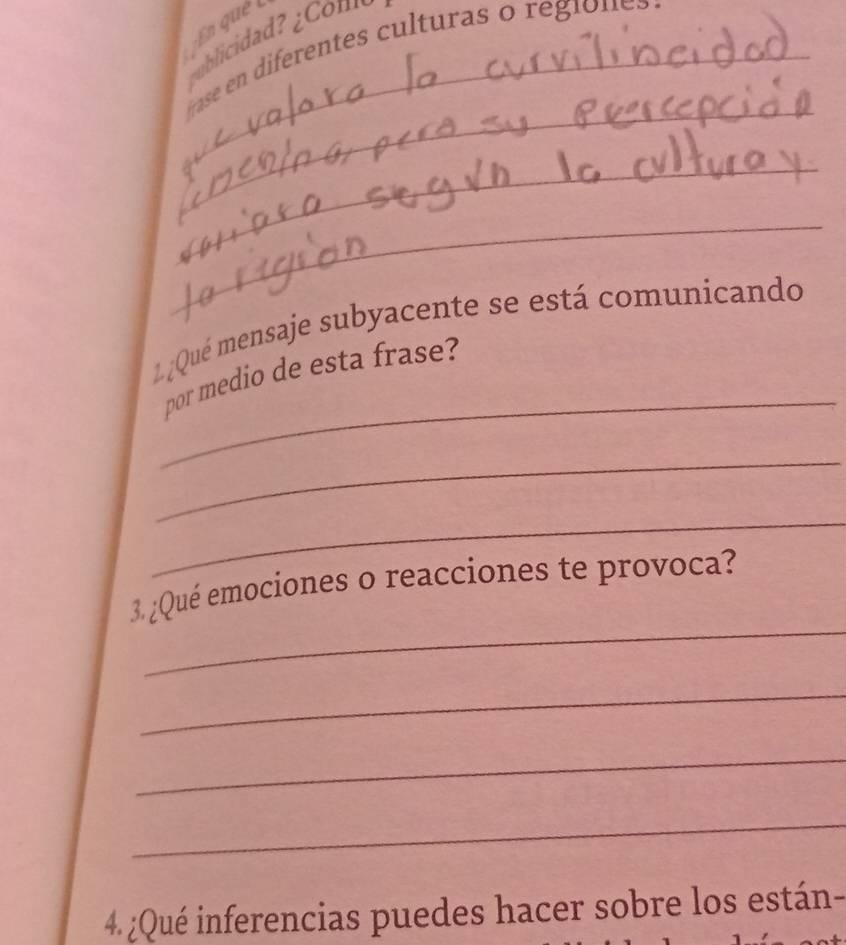 ¿En qué
publicidad? ¿Cómo
frase en diferentes culturas o regiones?
que valora la curvilineidad
femenina, pero su percepción
variara según la cultura y
la región
2. ¿Qué mensaje subyacente se está comunicando
por medio de esta frase?
3. ¿Qué emociones o reacciones te provoca?
4. ¿Qué inferencias puedes hacer sobre los están-